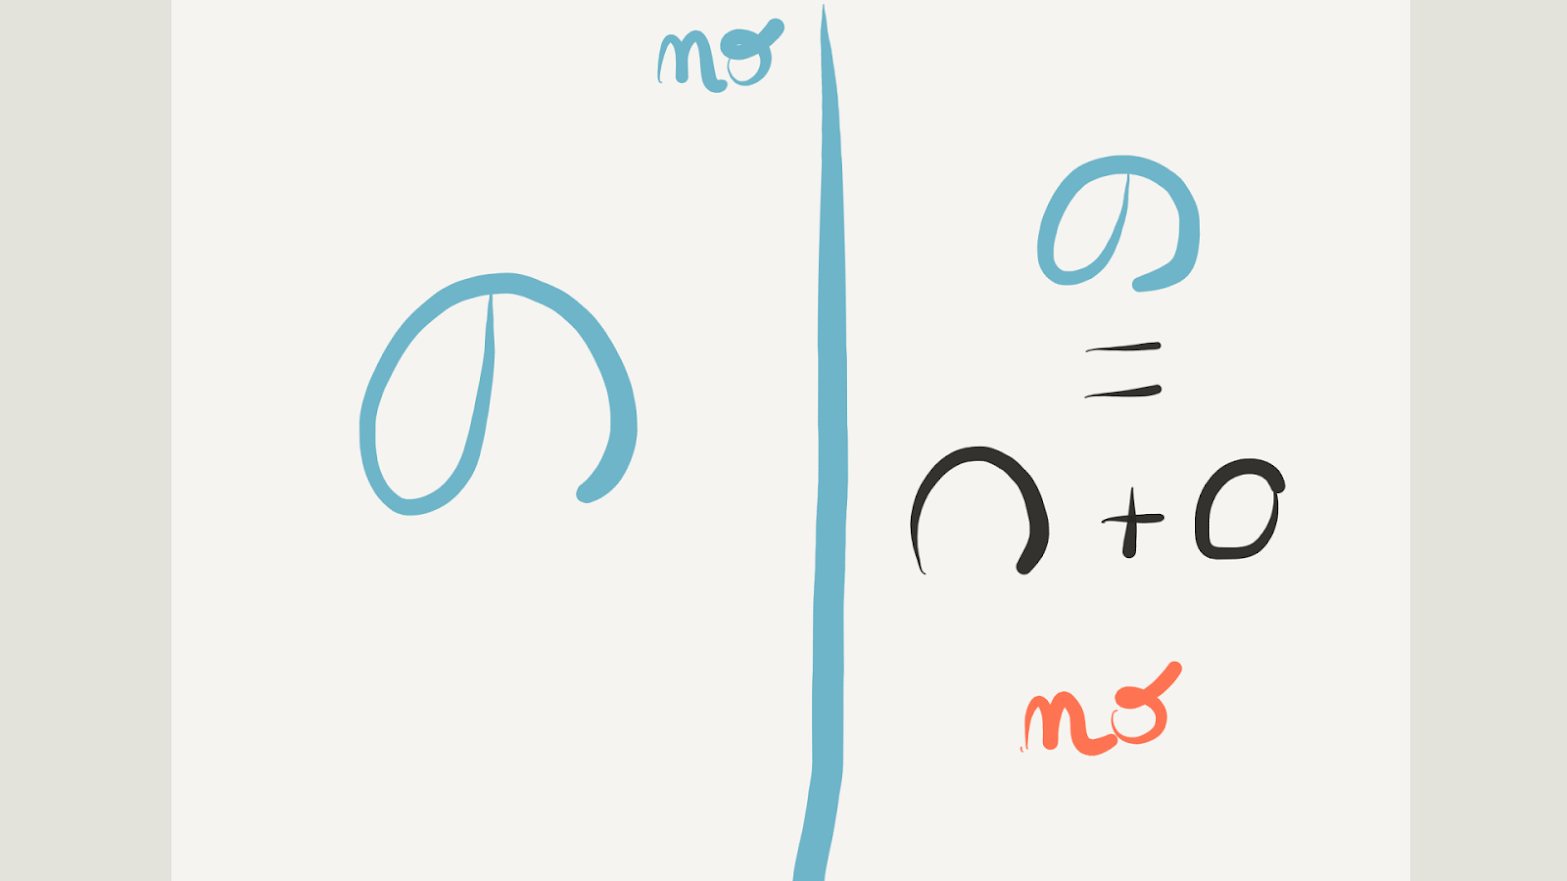 no
の
の
=
n + o
no